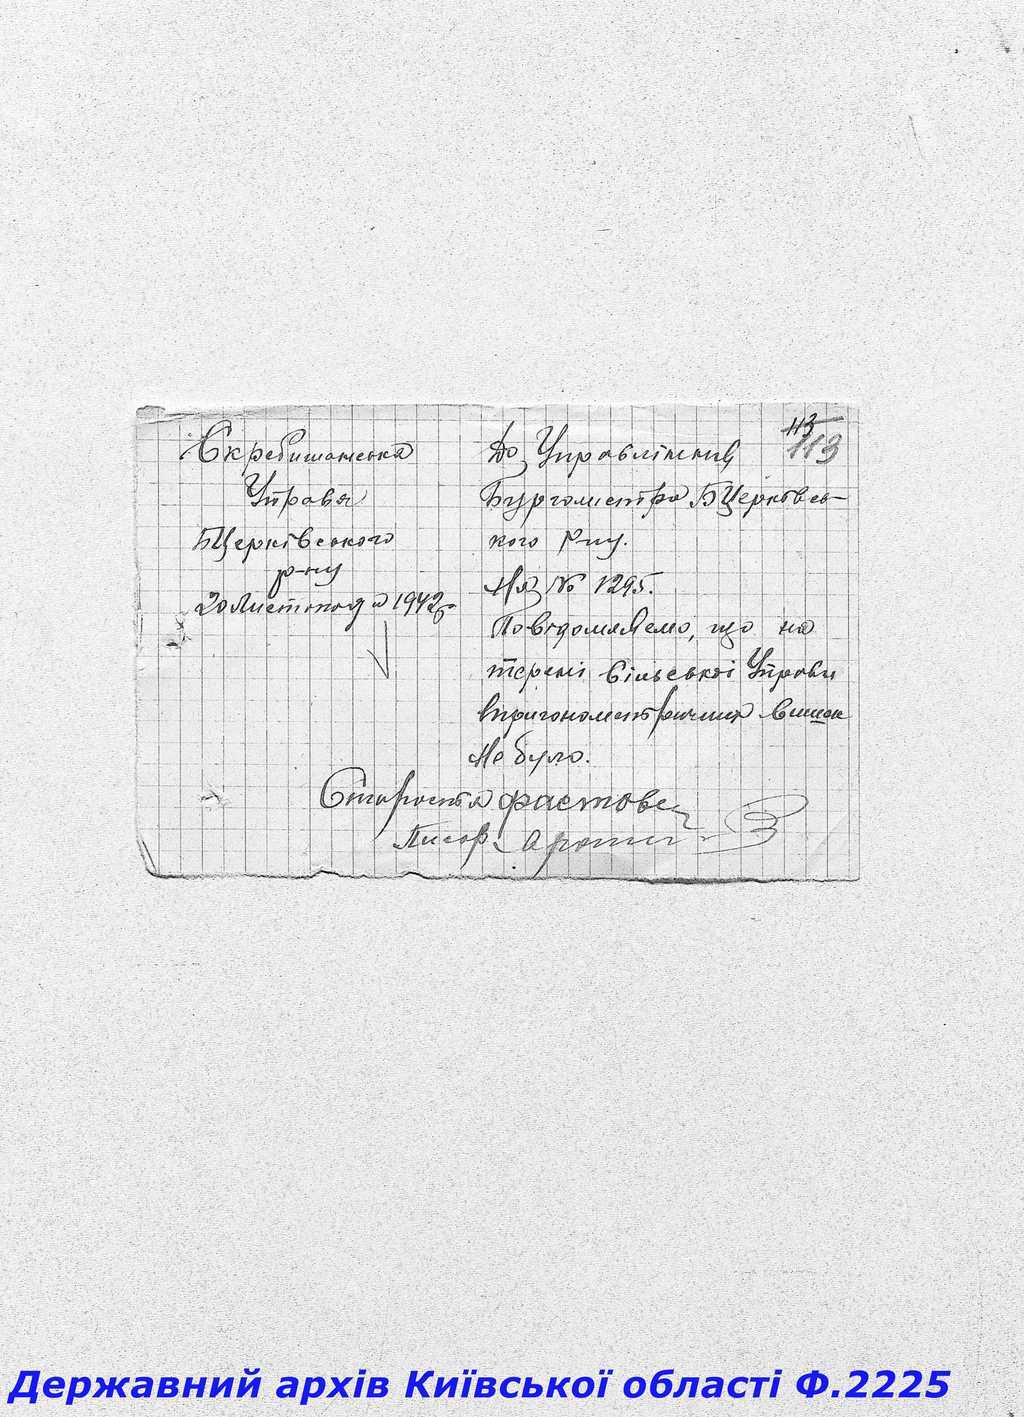 113
113
Скребишанська
Управа
БЦерківського
р-ну
20 Листопада 1942р
До Управління
Бургомістра БЦерковсь-
кого р-ну.
На № 1295.
Повідомляємо, що на
терені Сільської Управи
тригонометричних вишок
не було.
Староста Фастовец
Писар
Державний архів Київської області Ф.2225